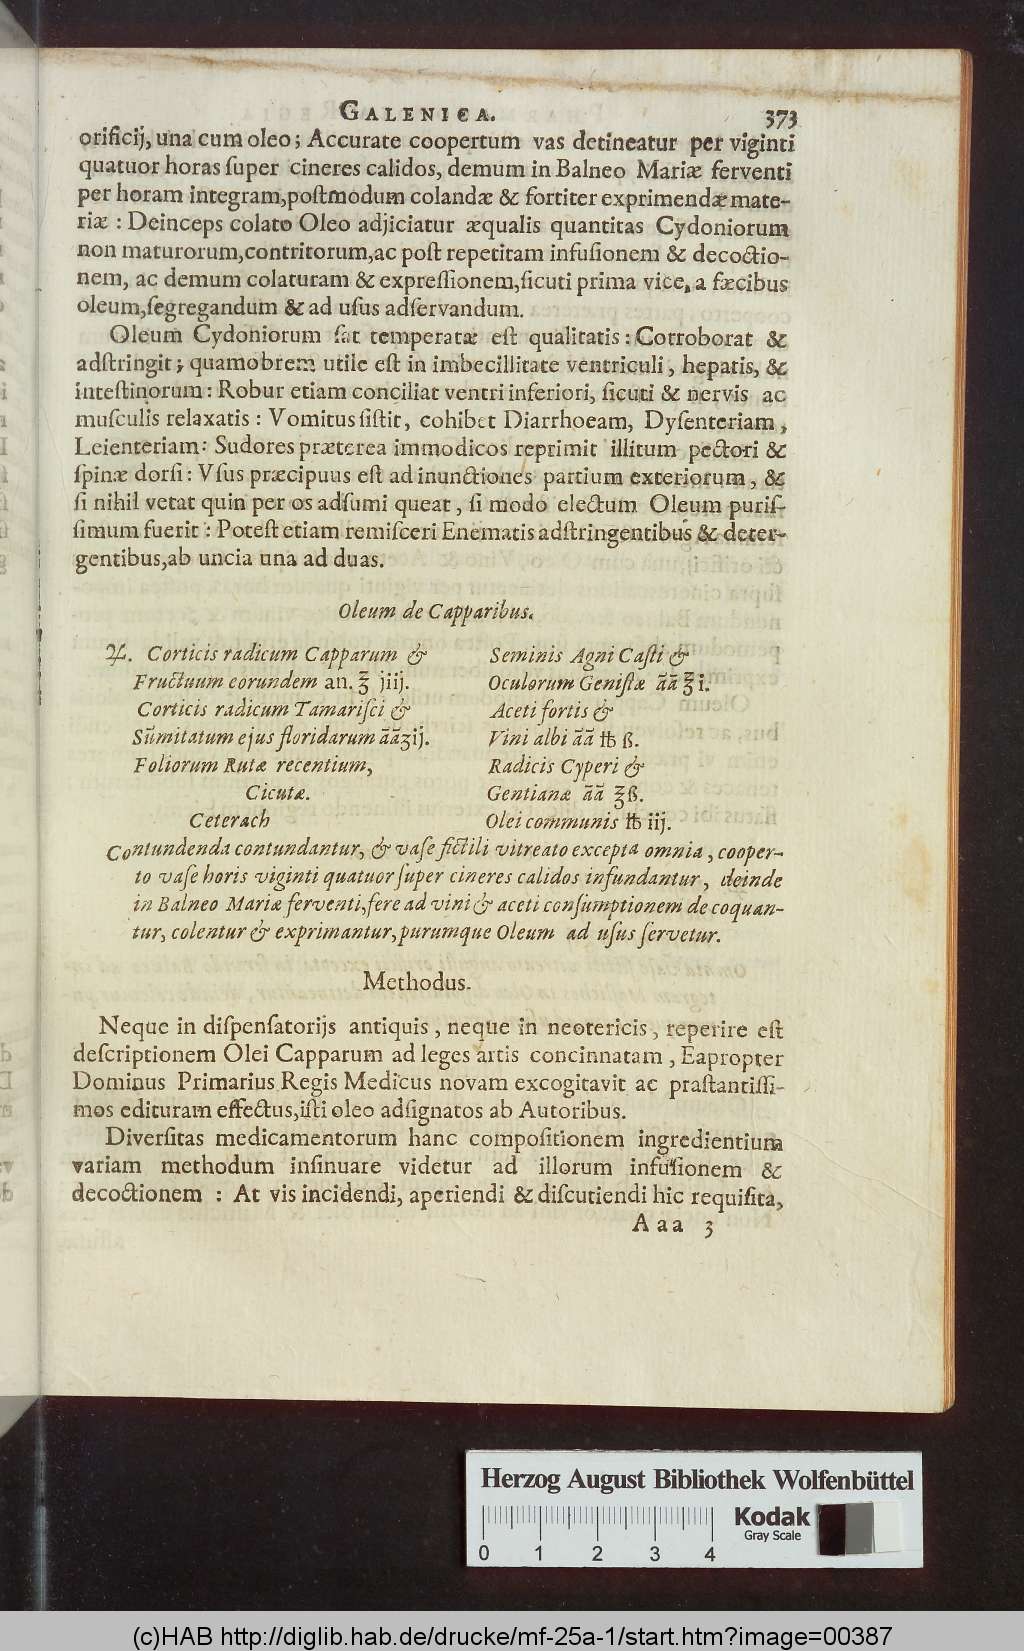 GALENICA. 373
orificij, una cum oleo; Accurate coopertum vas detineatur per viginti
quatuor horas ſuper cineres calidos, demum in Balneo Mariæ ferventi
per horam integram,poſtmodum colandæ & fortiter exprimendæ mate-
riæ : Deinceps colato Oleo adjiciatur æqualis quantitas Cydoniorum
non maturorum,contritorum,ac poſt repetitam infuſionem & decoctio-
nem, ac demum colaturam & expreſſionem,ſicuti prima vice, a fæcibus
oleum,ſegregandum & ad uſus adſervandum.
Oleum Cydoniorum ſat temperatæ eſt qualitatis : Corroborat &
adſtringit ; quamobrem utile eſt in imbecillitate ventriculi, hepatis, &
inteſtinorum : Robur etiam conciliat ventri inferiori, ſicuti & nervis ac
muſculis relaxatis : Vomitus ſiſtit, cohibet Diarrhoeam, Dyſenteriam,
Leienteriam: Sudores præterea immodicos reprimit illitum pectori &
ſpinæ dorſi : Vſus præcipuus eſt ad inunctiones partium exteriorum, &
ſi nihil vetat quin per os adſumi queat, ſi modo electum Oleum puriſ-
ſimum fuerit : Poteſt etiam remiſceri Enematis adſtringentibus & deter-
gentibus,ab uncia una ad duas.
Oleum de Capparibus.
♃. Corticis radicum Capparum &
Fructuum eorundem an. ℥ jiij.
Corticis radicum Tamariſci &
Sūmitatum ejus floridarum āāʒij.
Foliorum Rutæ recentium,
Cicutæ.
Ceterach
Seminis Agni Caſti &
Oculorum Geniſtæ āā ℥ i.
Aceti fortis &
Vini albi āā ℔ ß.
Radicis Cyperi &
Gentianæ āā ℥ß.
Olei communis ℔ iij.
Contundenda contundantur, & vaſe fictili vitreato excepta omnia, cooper-
to vaſe horis viginti quatuor ſuper cineres calidos infundantur, deinde
in Balneo Mariæ ferventi,fere ad vini & aceti conſumptionem decoquan-
tur, colentur & exprimantur,purumque Oleum ad uſus ſervetur.
Methodus.
Neque in diſpenſatorijs antiquis, neque in neotericis, reperire eſt
deſcriptionem Olei Capparum ad leges artis concinnatam, Eapropter
Dominus Primarius Regis Medicus novam excogitavit ac præſtantiſſi-
mos edituram effectus,iſti oleo adſignatos ab Autoribus.
Diverſitas medicamentorum hanc compoſitionem ingredientium
variam methodum inſinuare videtur ad illorum infuſionem &
decoctionem : At vis incidendi, aperiendi & diſcutiendi hic requiſita,
Aaa 3
Herzog August Bibliothek Wolfenbüttel
Kodak
Gray Scale
0 1 2 3 4
(c)HAB http://diglib.hab.de/drucke/mf-25a-1/start.htm?image=00387